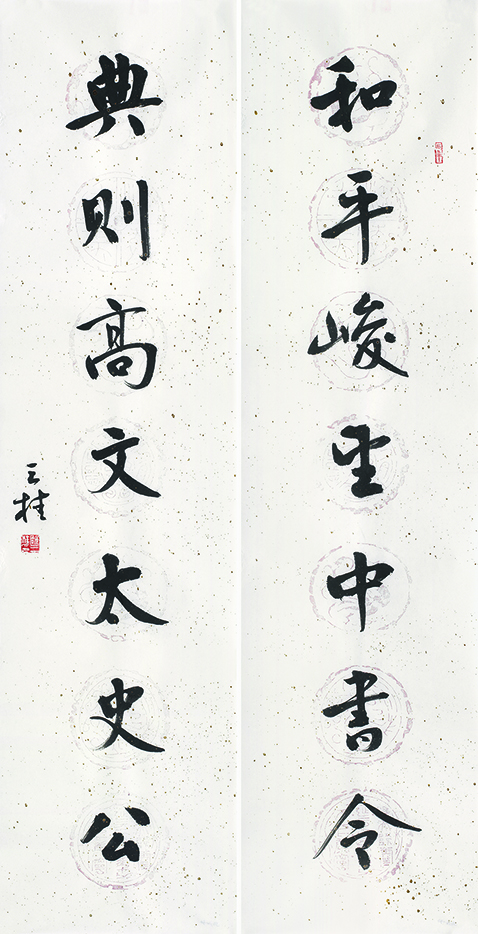 和平峻望中書令
典則高文太史公
三桂